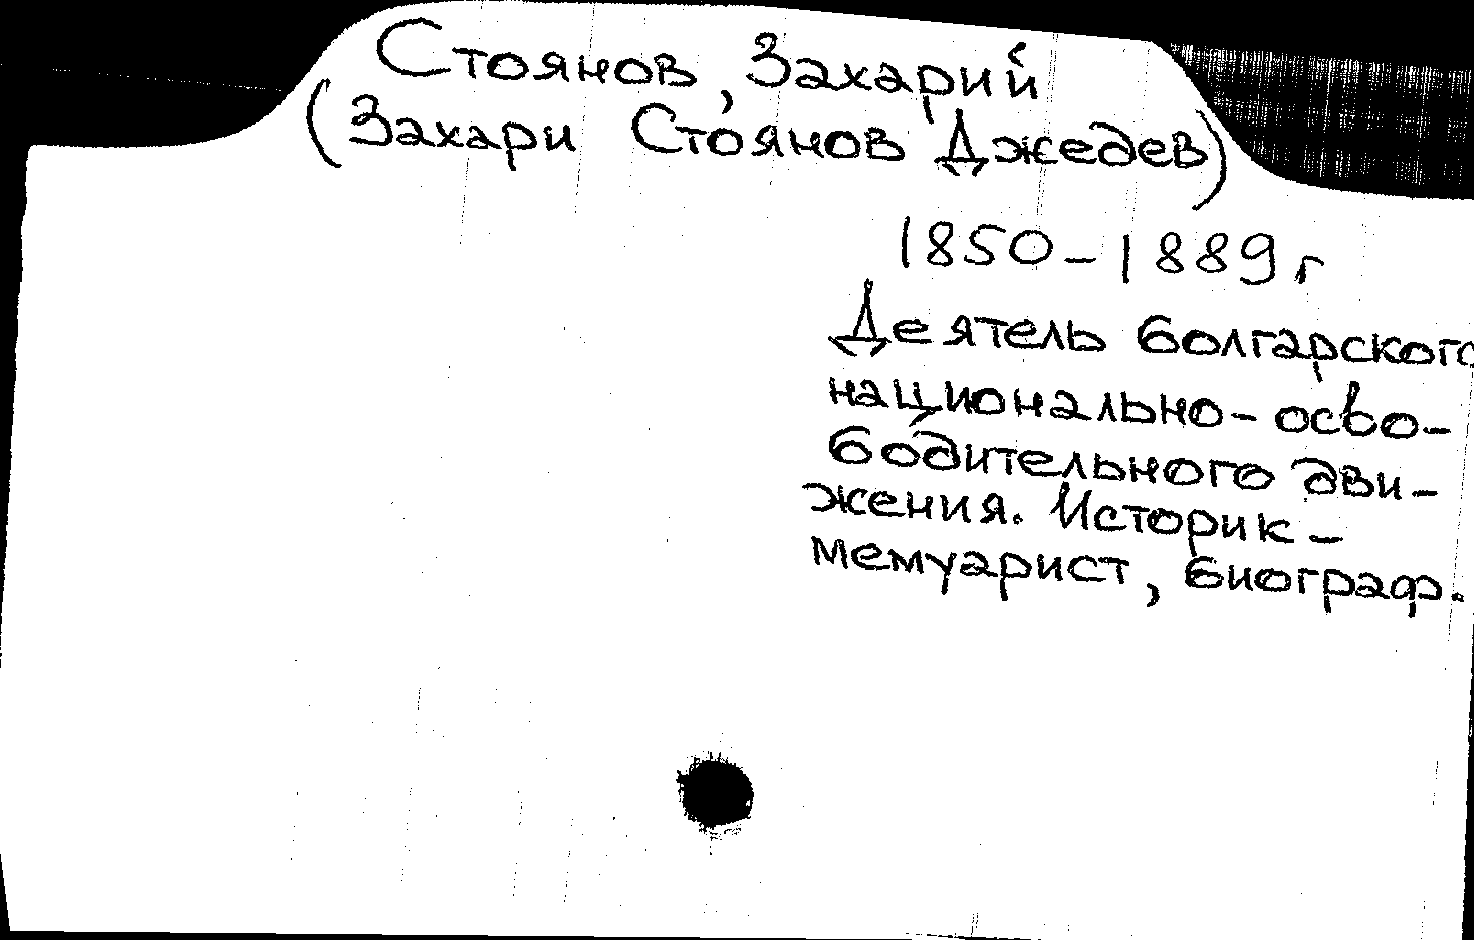 Стоянов, Захарий
(Захари Стоянов Джедев)
1850-1889 г
Деятель болгарского
национально-осво-
бодительного дви-
жения. Историк-
мемуарист, биограф.